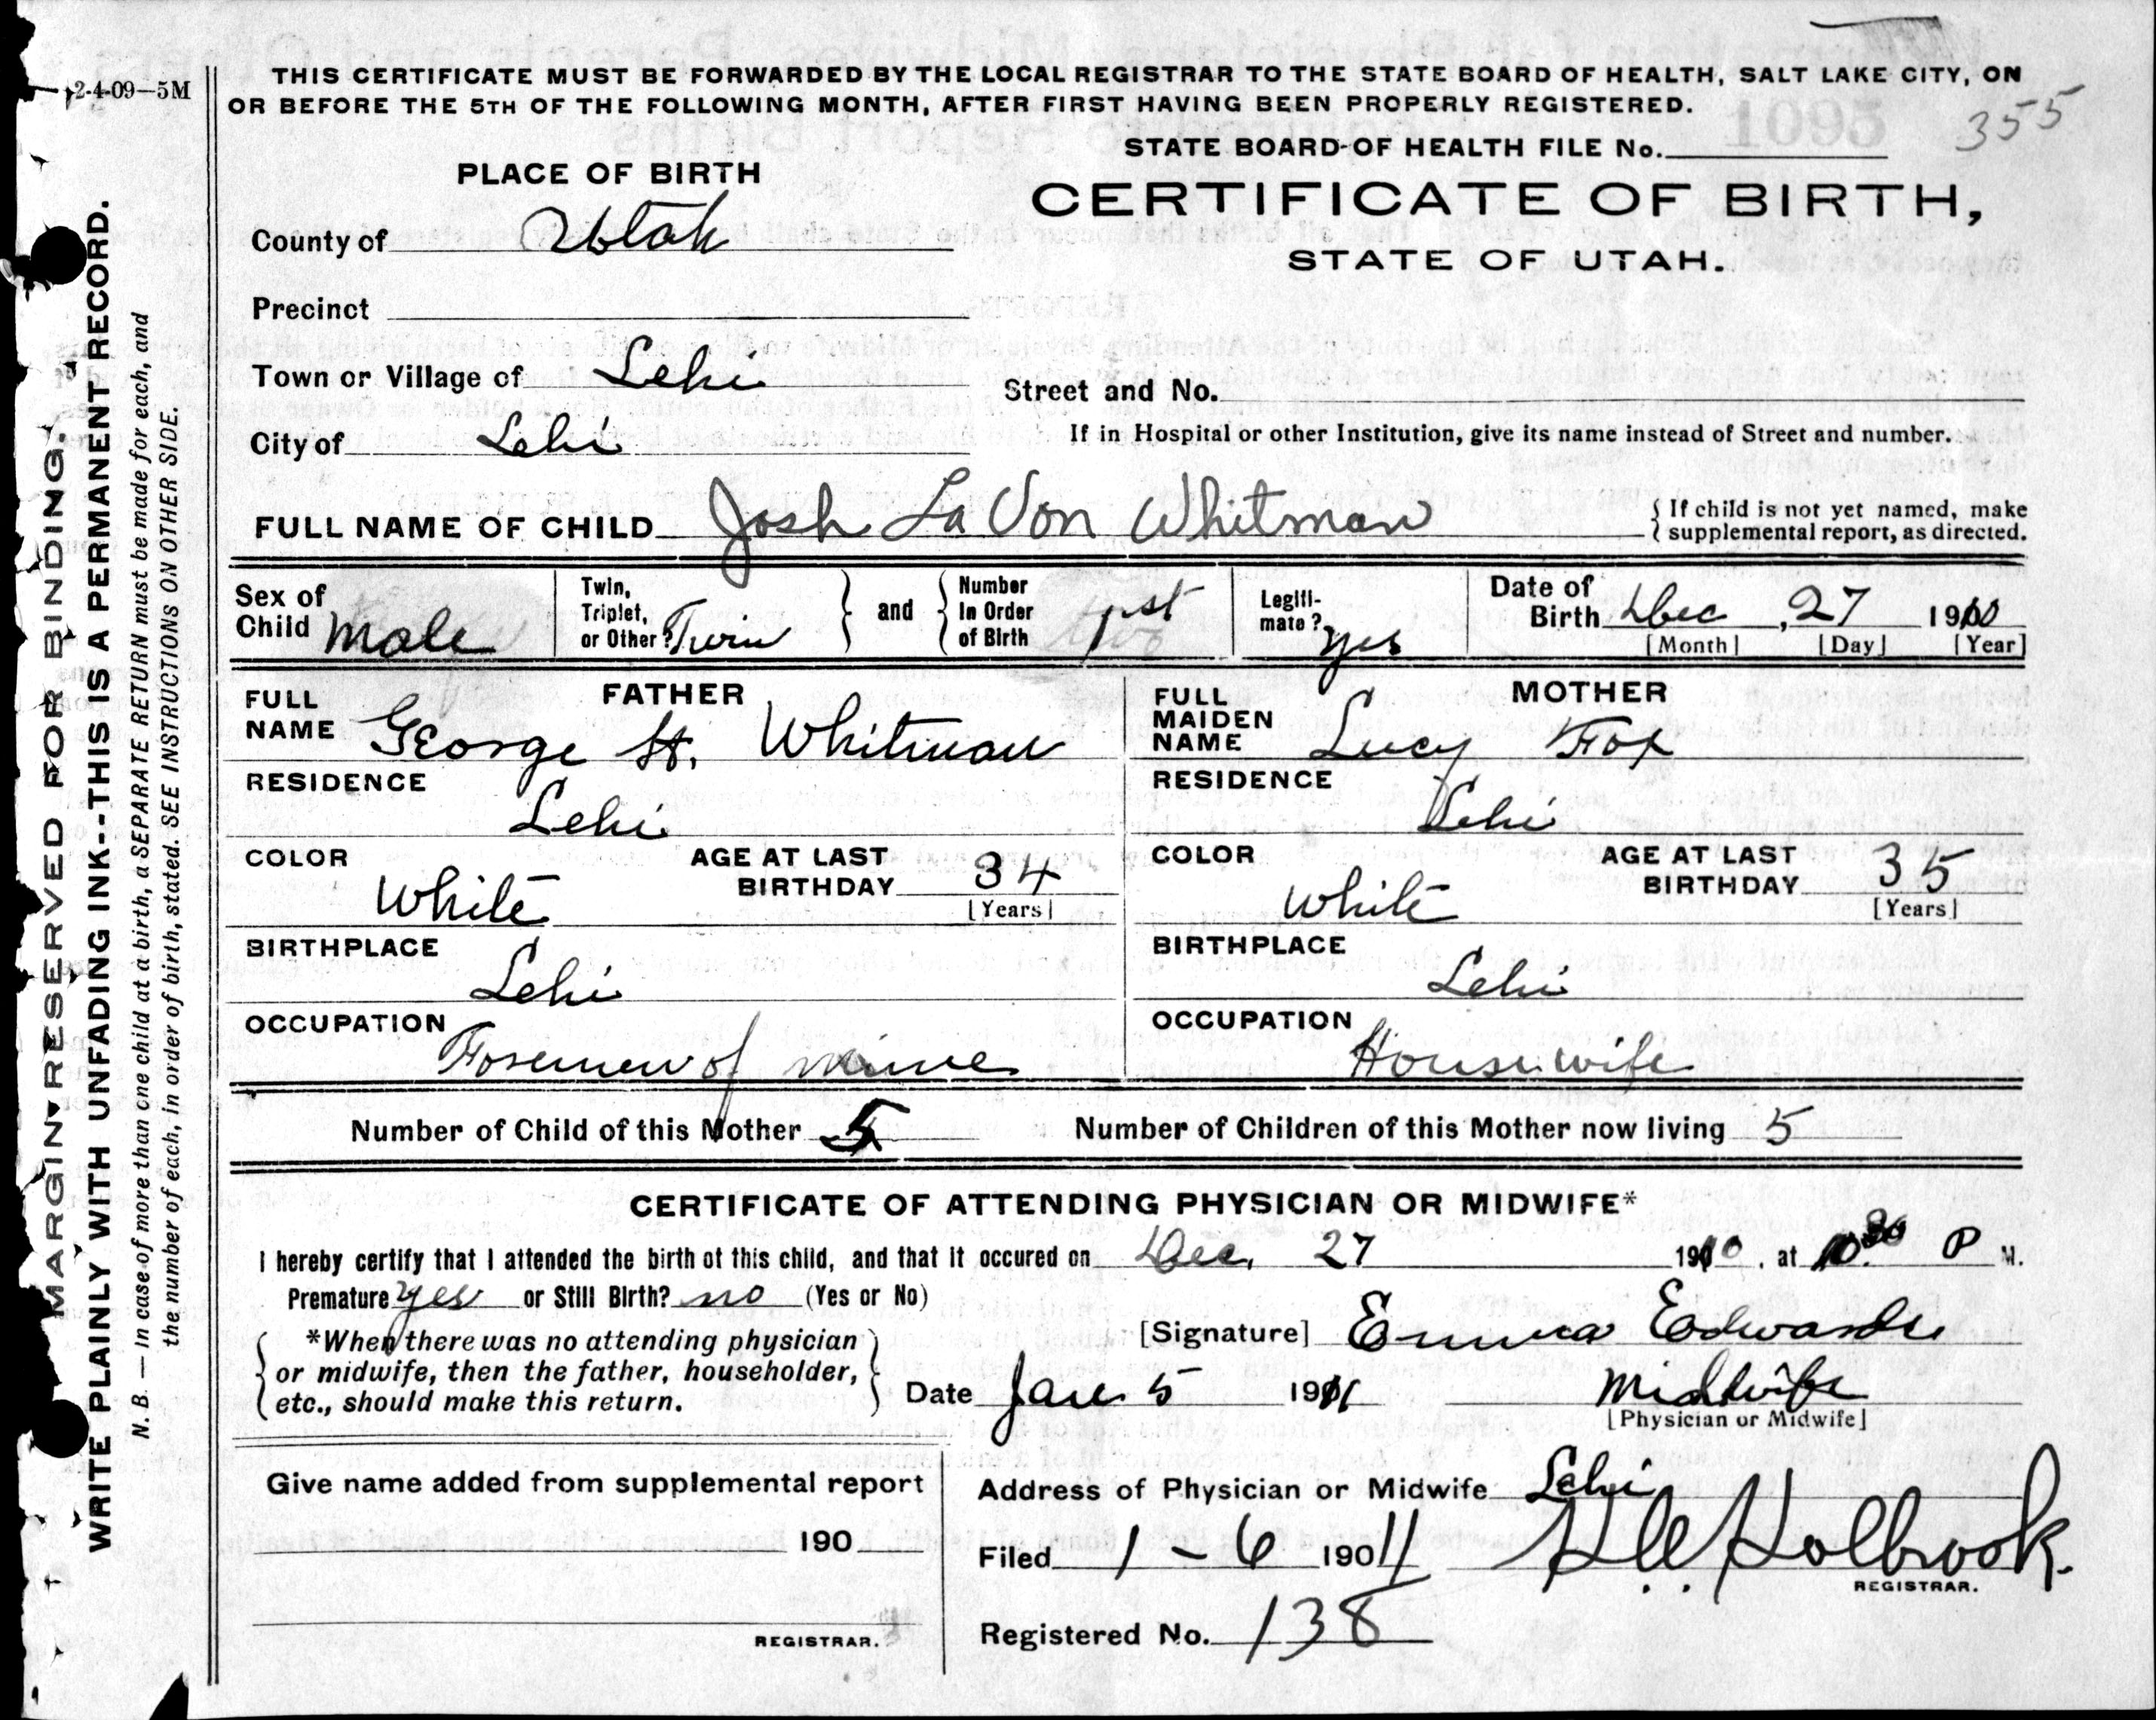 2-4-09—5M
THIS CERTIFICATE MUST BE FORWARDED BY THE LOCAL REGISTRAR TO THE STATE BOARD OF HEALTH, SALT LAKE CITY, ON
OR BEFORE THE 5TH OF THE FOLLOWING MONTH, AFTER FIRST HAVING BEEN PROPERLY REGISTERED.
1095
355
STATE BOARD OF HEALTH FILE No.
PLACE OF BIRTH
CERTIFICATE OF BIRTH,
STATE OF UTAH.
County of Utah
Precinct
Town or Village of Lehi
Street and No.
City of Lehi
If in Hospital or other Institution, give its name instead of Street and number.
FULL NAME OF CHILD Josh La Von Whitman
{ If child is not yet named, make
{ supplemental report, as directed.
Sex of Child Male
Twin, Triplet, or Other? Twin } and { Number In Order of Birth 1st
Legiti-mate? yes
Date of Birth Dec, 27 1910
[Month] [Day] [Year]
FATHER
FULL NAME George H. Whitman
RESIDENCE
Lehi
COLOR
White
AGE AT LAST BIRTHDAY 34
[Years]
BIRTHPLACE
Lehi
OCCUPATION
Foreman of mine
MOTHER
FULL MAIDEN NAME Lucy Fox
RESIDENCE
Lehi
COLOR
White
AGE AT LAST BIRTHDAY 35
[Years]
BIRTHPLACE
Lehi
OCCUPATION
Housewife
Number of Child of this Mother 5
Number of Children of this Mother now living 5
CERTIFICATE OF ATTENDING PHYSICIAN OR MIDWIFE*
I hereby certify that I attended the birth of this child, and that it occured on Dec, 27 1910, at 10.30 P M.
Premature yes or Still Birth? no (Yes or No)
*When there was no attending physician
or midwife, then the father, householder,
etc., should make this return.
[Signature] Emma Edwards
Date Jan 5 1911
Midwife
[Physician or Midwife]
Give name added from supplemental report
190
REGISTRAR.
Address of Physician or Midwife Lehi
Filed 1-6 1911
Holbrook.
REGISTRAR.
Registered No. 138
MARGIN RESERVED FOR BINDING.
WRITE PLAINLY WITH UNFADING INK--THIS IS A PERMANENT RECORD.
N. B. — In case of more than one child at a birth, a SEPARATE RETURN must be made for each, and
the number of each, in order of birth, stated. SEE INSTRUCTIONS ON OTHER SIDE.